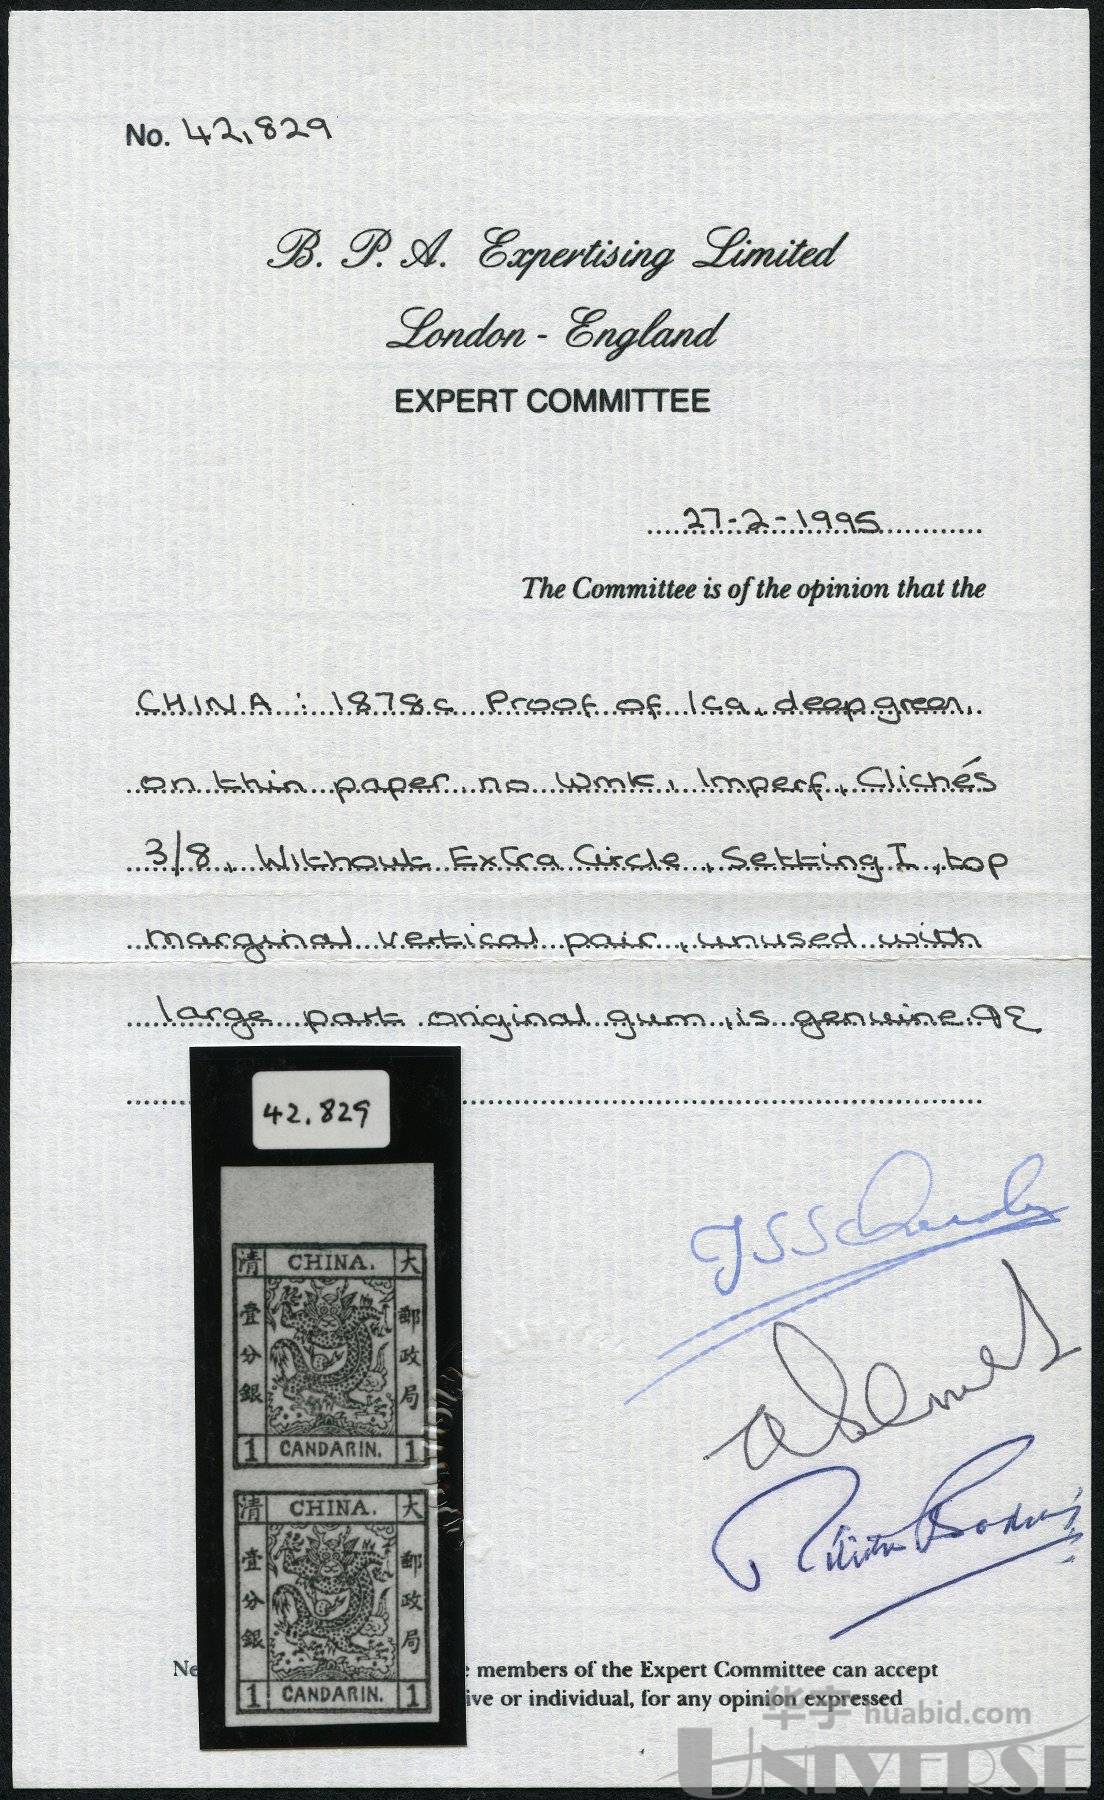 No. 42,829
B. P. A. Expertising Limited
London - England
EXPERT COMMITTEE
27-2-1995
The Committee is of the opinion that the
CHINA : 1878c Proof of 1ca, deep green,
on thin paper, no wmk, Imperf, Clichés
3/8, Without Extra Circle, Setting I, top
marginal vertical pair, unused with
large part original gum, is genuine.
42.829
清 CHINA. 大
壹分銀
郵政局
1 CANDARIN. 1
清 CHINA. 大
壹分銀
郵政局
1 CANDARIN. 1
Ne members of the Expert Committee can accept
ive or individual, for any opinion expressed
华宇 huabid.com
UNIVERSE